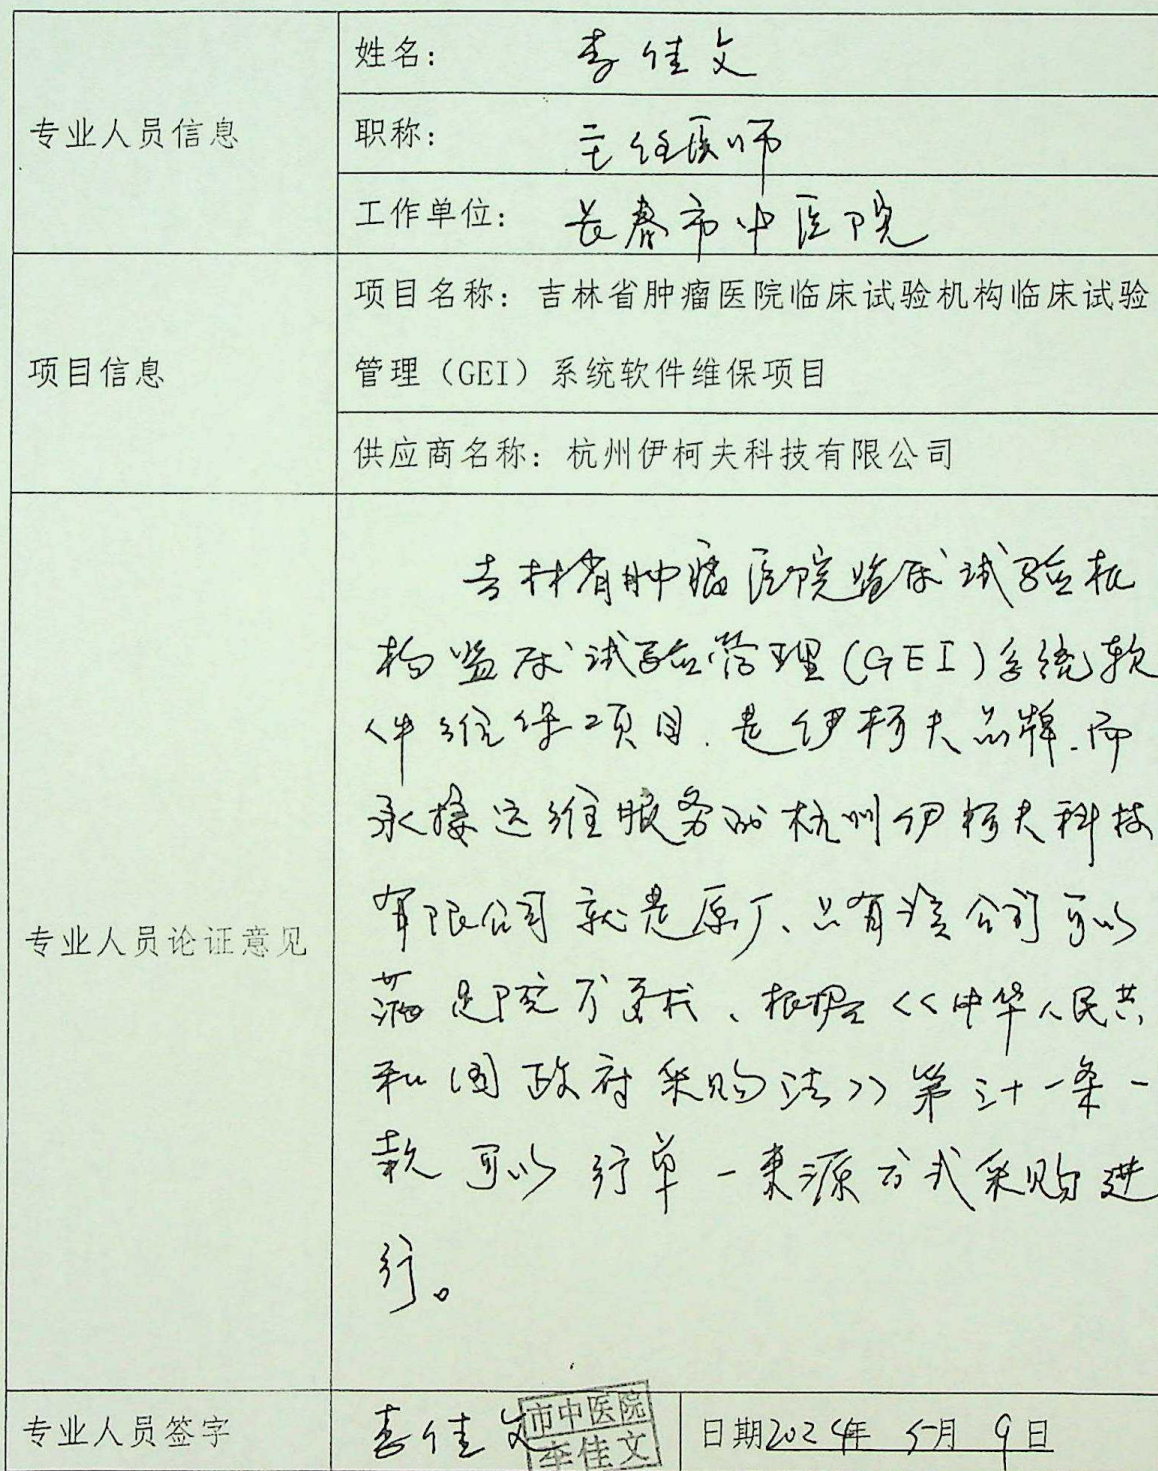 姓名: 李佳文
专业人员信息
职称: 主任医师
工作单位: 长春市中医院
项目名称: 吉林省肿瘤医院临床试验机构临床试验
项目信息
管理（GEI）系统软件维保项目
供应商名称: 杭州伊柯夫科技有限公司
吉林省肿瘤医院临床试验机
构临床试验管理(GEI)系统软
件维保项目.是伊柯夫品牌.而
承接运维服务的杭州伊柯夫科技
有限公司就是原厂、只有该公司可以
专业人员论证意见
满足院方要求、根据<<中华人民共
和国政府采购法>>第三十一条一
款可以行单一来源方式采购进
行。
专业人员签字
李佳文
市中医院
李佳文
日期2024年 5月 9日